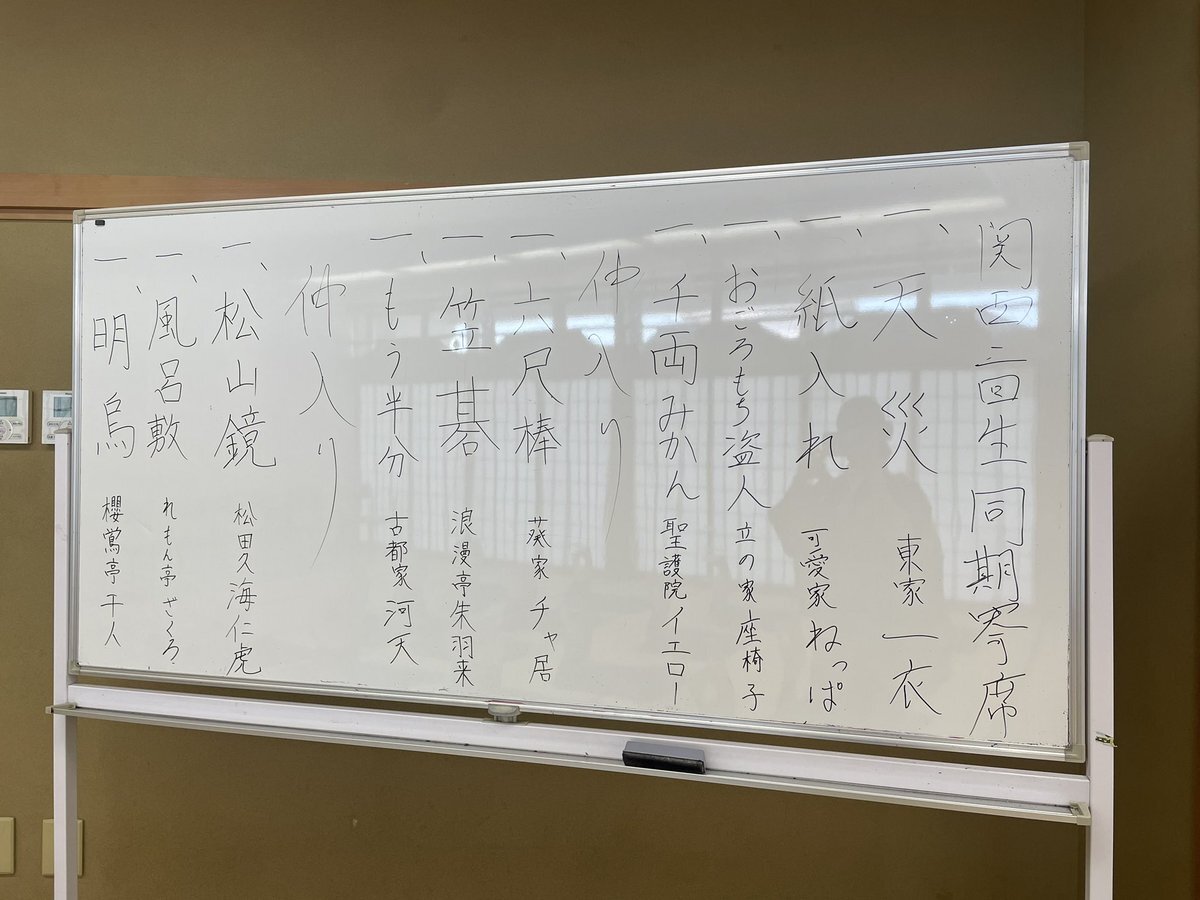 関西二回生同期寄席
一、天災 東家 一衣
一、紙入れ 可愛家ねっぱ
一、おごろもち盗人 立の家 座椅子
一、千両みかん 聖護院イエロー
仲入り
一、六尺棒 葵家 チャ居
一、笠碁 浪漫亭朱羽来
一、もう半分 古都家 河天
仲入り
一、松山鏡 松田久 海仁虎
一、風呂敷 れもん亭 ざくろ
一、明烏 櫻鶯亭 干人